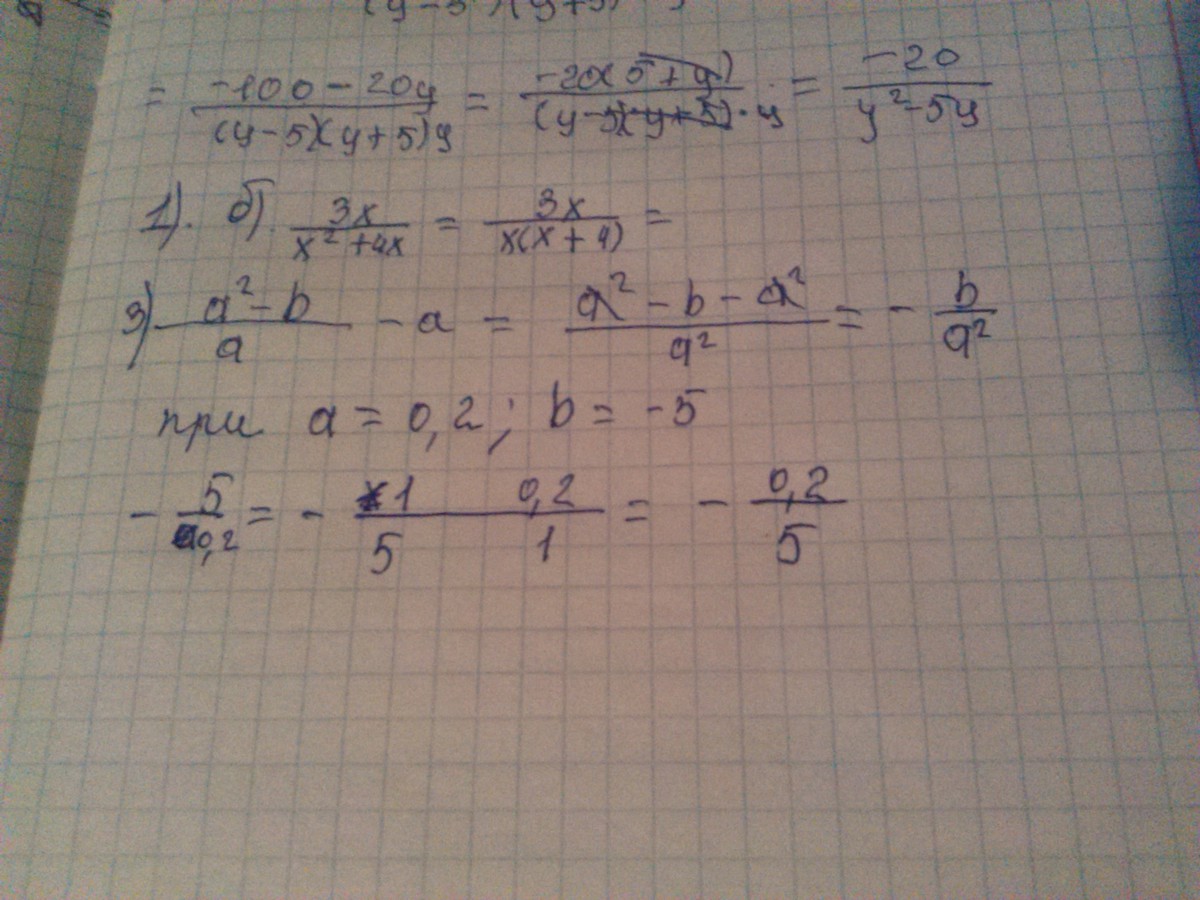 (y-5)(y+5)
= -100-20y/(y-5)(y+5)y = -20(5+y)/(y-5)(y+5)·y = -20/y²-5y
1). б). 3x/x²+4x = 3x/x(x+4) =
3) a²-b/a - a = a²-b-a²/a² = - b/a²
при a = 0,2; b = -5
- 5/0,2 = - 1/5 0,2/1 = - 0,2/5